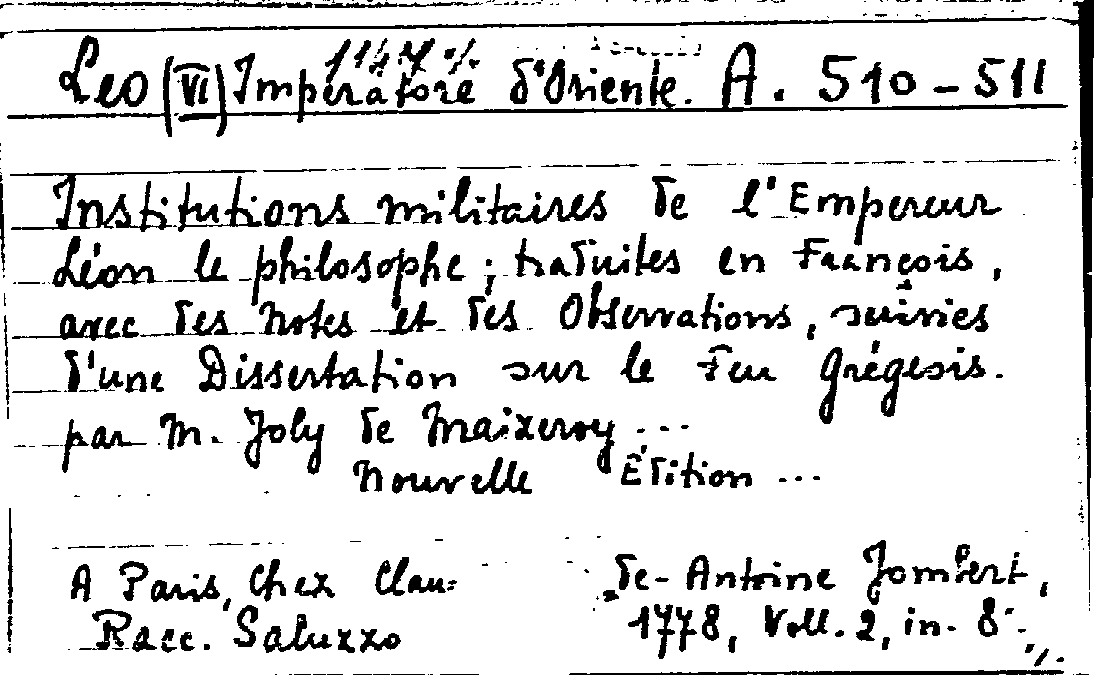 1147 %.
Leo (VI) Imperatore d'Oriente. A. 510-511
Institutions militaires de l'Empereur
Léon le philosophe; traduites en François,
avec des Notes et des Observations, suivies
d'une Dissertation sur le Feu Grégeois.
par M. Joly de Maizeroy...
Nouvelle Édition ...
A Paris, Chez Clau= de-Antoine Jombert,
Racc. Saluzzo 1778, Voll. 2, in-8°.